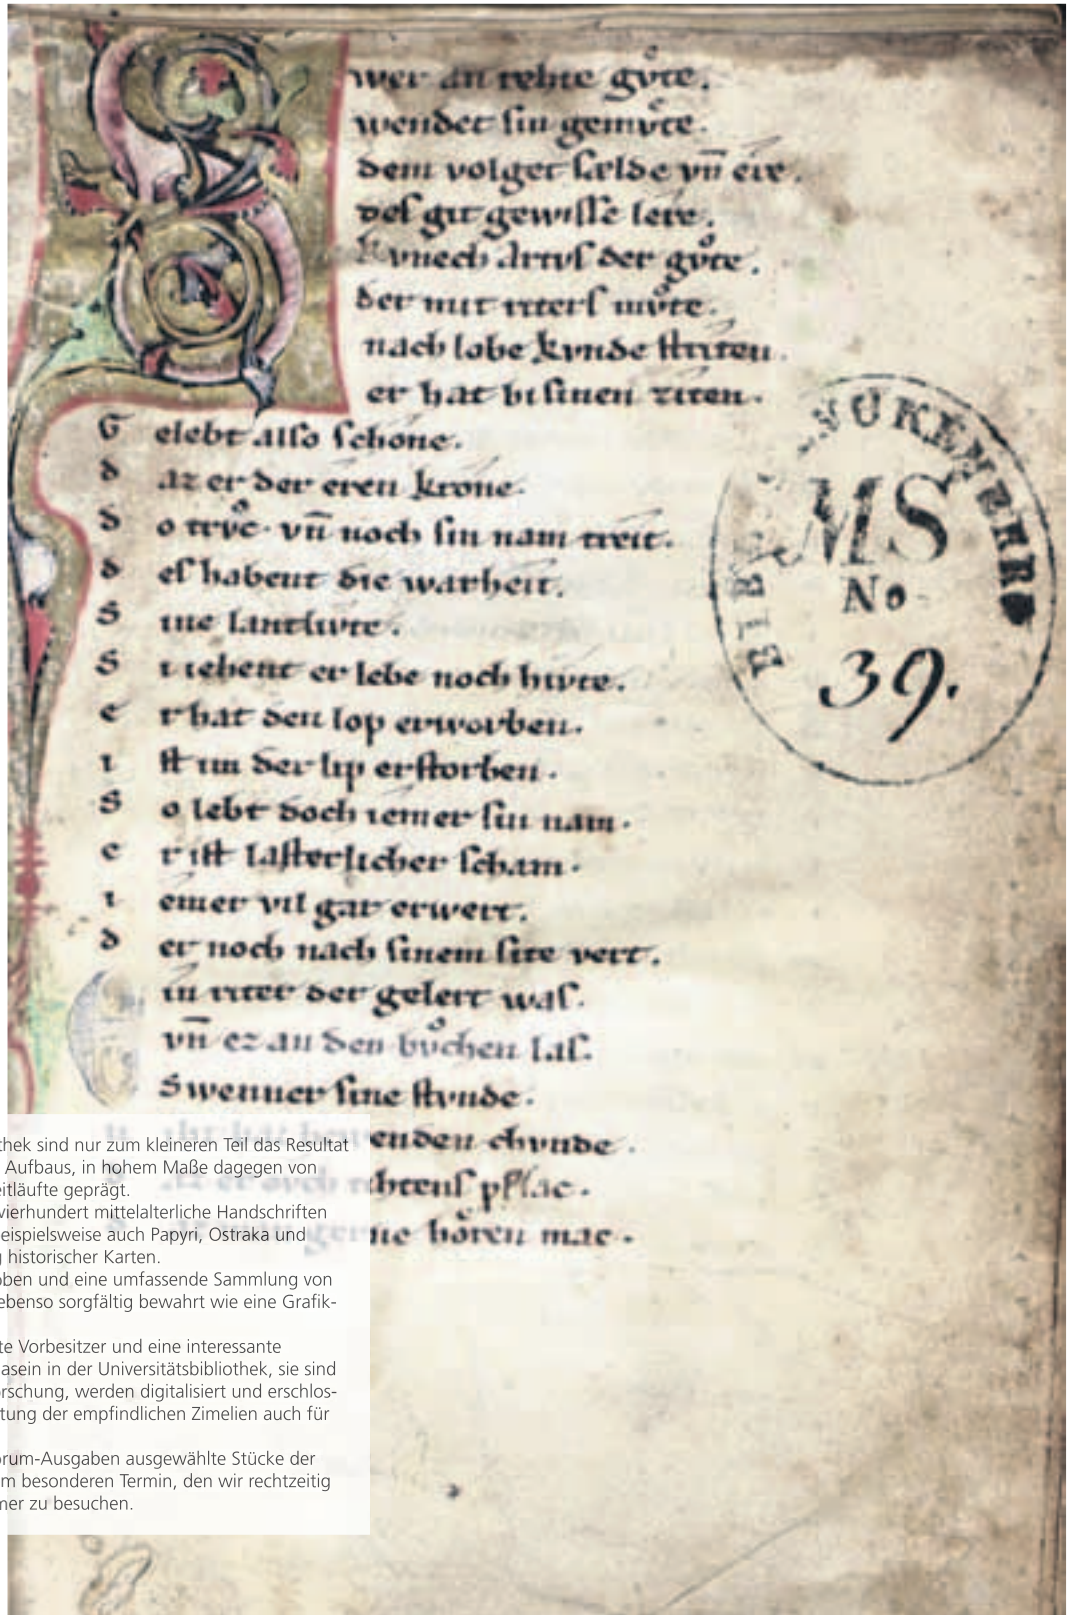 Swer an rehte gvͦte.
wendet sin gemvͦte.
dem volget sælde vn̄ ere.
des git gewisse lere.
kvnech Artvs der gvͦte.
der mit riters mvͦte.
nach lobe kvnde striten.
er hat bi sinen ziten.
G elebt also schone.
d az er der eren krone.
d o trvͦc. vn̄ noch sin nam treit.
d es habent die warheit.
S ine lantlivte.
S i iehent er lebe noch hivte.
e r hat den lop erworben.
i st im der lip erstorben.
S o lebt doch iemer sin nam.
e r ist lasterlicher scham.
i emer vil gar erwert.
d er noch nach sinem site vert.
in riter der gelert was.
vn̄ ez an den bvͦchen las.
Swenner sine stvnde.
enden chvnde.
ihtens pflac.
gerne hoͤren mac.
BIBL FVRKEMBERG
MS
No
39.
thek sind nur zum kleineren Teil das Resultat
Aufbaus, in hohem Maße dagegen von
eitläufte geprägt.
vierhundert mittelalterliche Handschriften
eispielsweise auch Papyri, Ostraka und
g historischer Karten.
oben und eine umfassende Sammlung von
ebenso sorgfältig bewahrt wie eine Grafik-
te Vorbesitzer und eine interessante
asein in der Universitätsbibliothek, sie sind
orschung, werden digitalisiert und erschlos-
tung der empfindlichen Zimelien auch für
orum-Ausgaben ausgewählte Stücke der
m besonderen Termin, den wir rechtzeitig
mer zu besuchen.